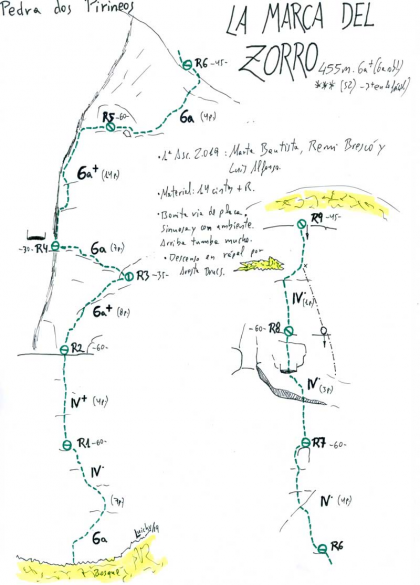 Pedra dos Pirineos
LA MARCA DEL
ZORRO
455m. 6a+ (6a obl)
R6 -45-
R5 -60-
6a (4p)
• 1ª Asc. 2.019: Marta Bautista, Remi Brescó y
Luis Alfonso.
6a+ (14p)
• Material: 14 cintas + R.
• Bonita vía de placa,
sinuosa y con ambiente.
Arriba tumba mucho.
• Descenso en rápel por
-30- R4
6a (7p)
R3 -35-
6a+ (8p)
R2 -60-
IV+ (4p)
R1 -60-
IV
(7p)
6a
Luichy/19
Bosque
R9 -45-
IV
-60- R8
IV (3p)
R7 -60-
IV (4p)
R6